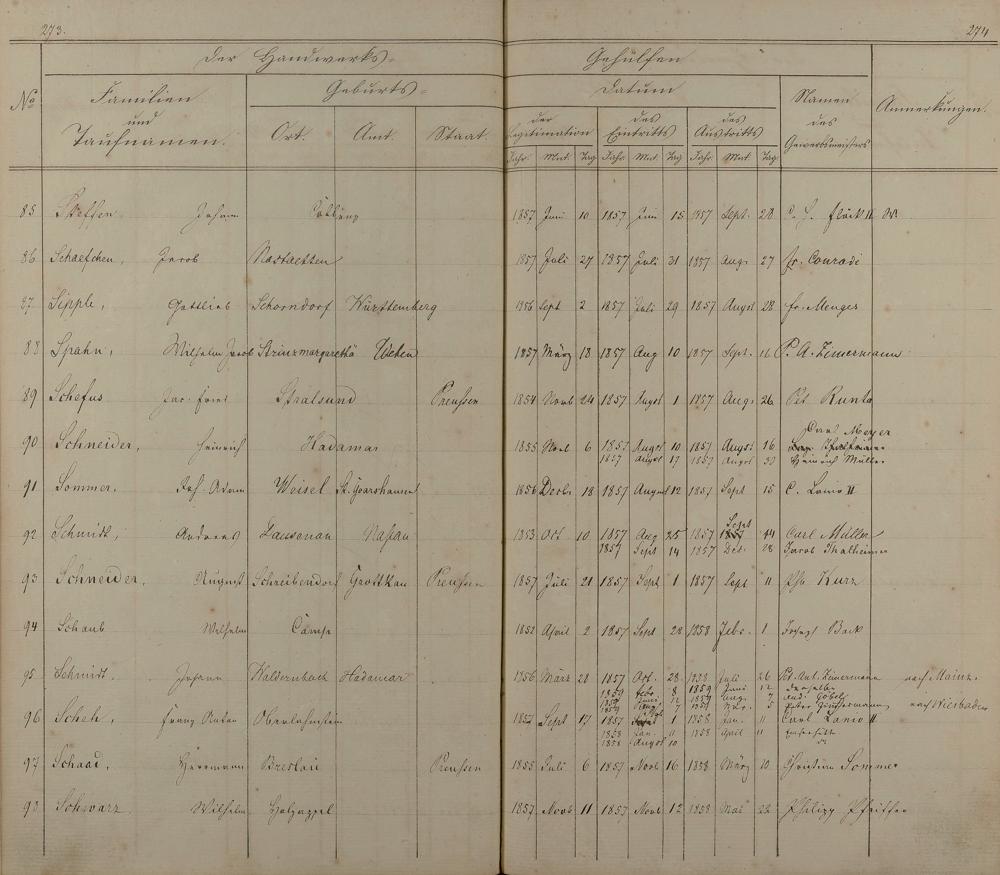 273.
274
Der Handwerks-
Gehülfen
No
Familien
und
Taufnamen.
Geburts-
Ort.
Amt.
Staat.
Datum
der
Legitimation
des
Eintritts
des
Austritts
Namen
des
Gewerbsmeisters
Anmerkungen.
Jahr. Mnt. Tag Jahr. Mnt. Tag Jahr. Mnt. Tag
85 Steffen Johann 1857 Juni 10 1857 Juni 15 1857 Sept. 28 C. H. Flöck II
86 Schaefchen, Jacob Nastaetten 1857 Juli 27 1857 Juli 31 1857 Aug. 27 Fr. Conradi
87 Sipple, Gottlieb Schorndorf Württemberg 1856 Sept 2 1857 Juli 29 1857 Augst 28 Fr. Menges
88 Spahn, Wilhelm Jacob Strinzmargarethä Wehen 1857 März 18 1857 Aug 10 1857 Sept. 16 P. A. Zimermann
89 Schefus Jac. Fried Stralsund Preussen 1854 Novb 24 1857 Augst 1 1857 Aug. 26 Pet Kuntz
90 Schneider, Heinrich Hadamar 1855 Novb 6 1857 Augst 10 1857 Augst 16 Carl Meyer
1857 Augst 17 1857 Augst 30 Heinrich Müller
91 Sommer. Jos. Adam Weisel St. Goarshausen 1856 Decbr 18 1857 August 12 1857 Sept 15 C. Lanio II
92 Schmidt, Andreas Dausenau Nassau 1853 Oct 10 1857 Aug 25 1857 Sept 14 Carl Müller
1857 Sept 14 1857 Dec. 28 Jacob Thalheimer
93 Schneider. August Schreibendorf Grottkau Preussen 1857 Juli 21 1857 Sept 1 1857 Sept 11 Ph. Kurz
94 Schaub Wilhelm Camp 1852 April 2 1857 Sept 28 1858 Febr. 1 Joseph Back
95 Schmidt. Johann Waldernbach Hadamar 1856 März 28 1857 Oct. 28 1858 Juli 26 Pet. Ant. Zimermann nach Mainz.
1859 Febr. 8 1859 Juni 12 derselbe
1859 Juni 12 1859 Aug. 7 And. Göbel
1859 Aug. 7 1859 Nov. 5 Peter Zimmermann nach Wiesbaden
96 Schah, Franz Anton Oberlahnstein 1857 Sept 17 1857 1 1858 Jan. 11 Carl Lanio II
1858 Jan. 11 1858 April 11
1858 August 10
97 Schaad, Herrmann Breslau Preussen 1855 Juli 6 1857 Novb 16 1858 März 10 Christian Sommer
98 Schwarz Wilhelm Holzappel 1857 Novb 11 1857 Novb 12 1858 Mai 22 Philipp Pfeiffer